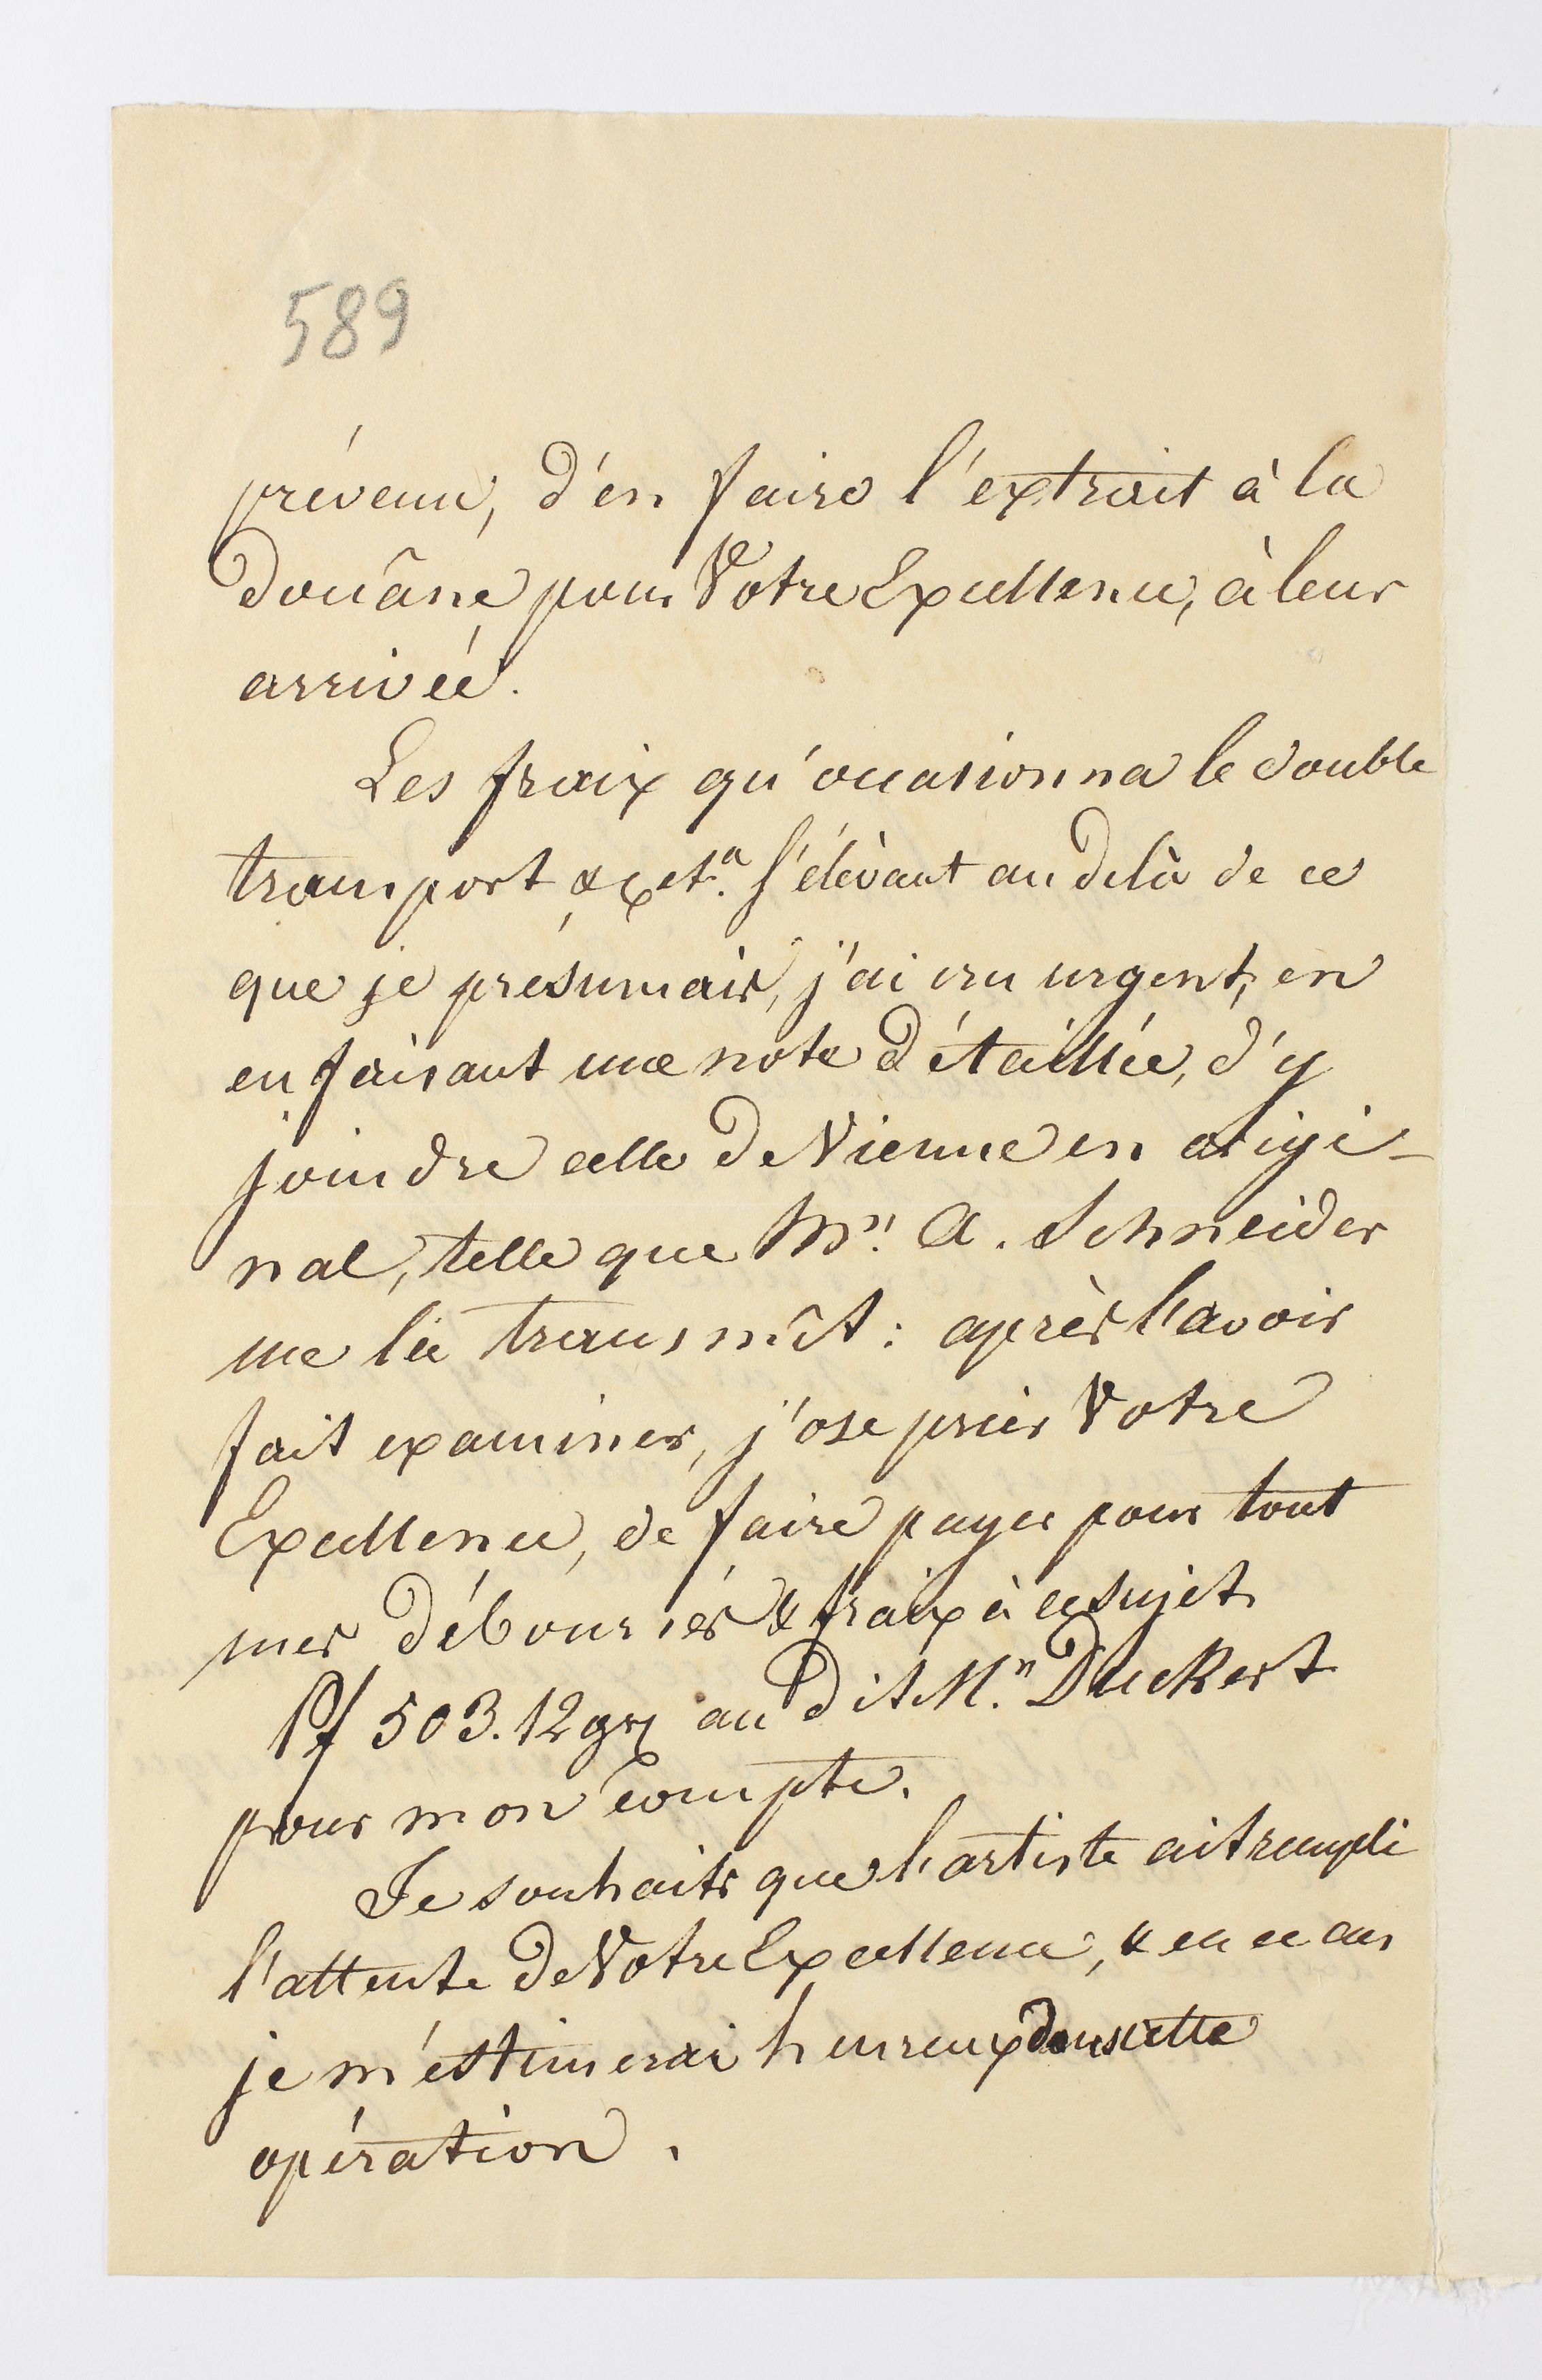 589
prévenu, d'en faire l'extrait à la
douâne pour Votre Excellence, à leur
arrivée.
Les fraix qu'occasionna le double
transport & cet.ª s'élèvant au delà de ce
que je présumais, j'ai cru urgent, en
en faisant une note détaillée, d'y
joindre celle de Vienne en origi-
nal, telle que Mr. A. Schneider
me la transmît: après l'avoir
fait examiner, j'ose prier Votre
Excellence, de faire payer pour tout
mes déboursés & fraix à ce sujet
503.12 gr au dit Mr. Duckert
pour mon compte.
Je souhaite que l'artiste ait rempli
l'attente de Votre Excellence, & en ce cas
je m'estimerai heureux dans cette
opération.